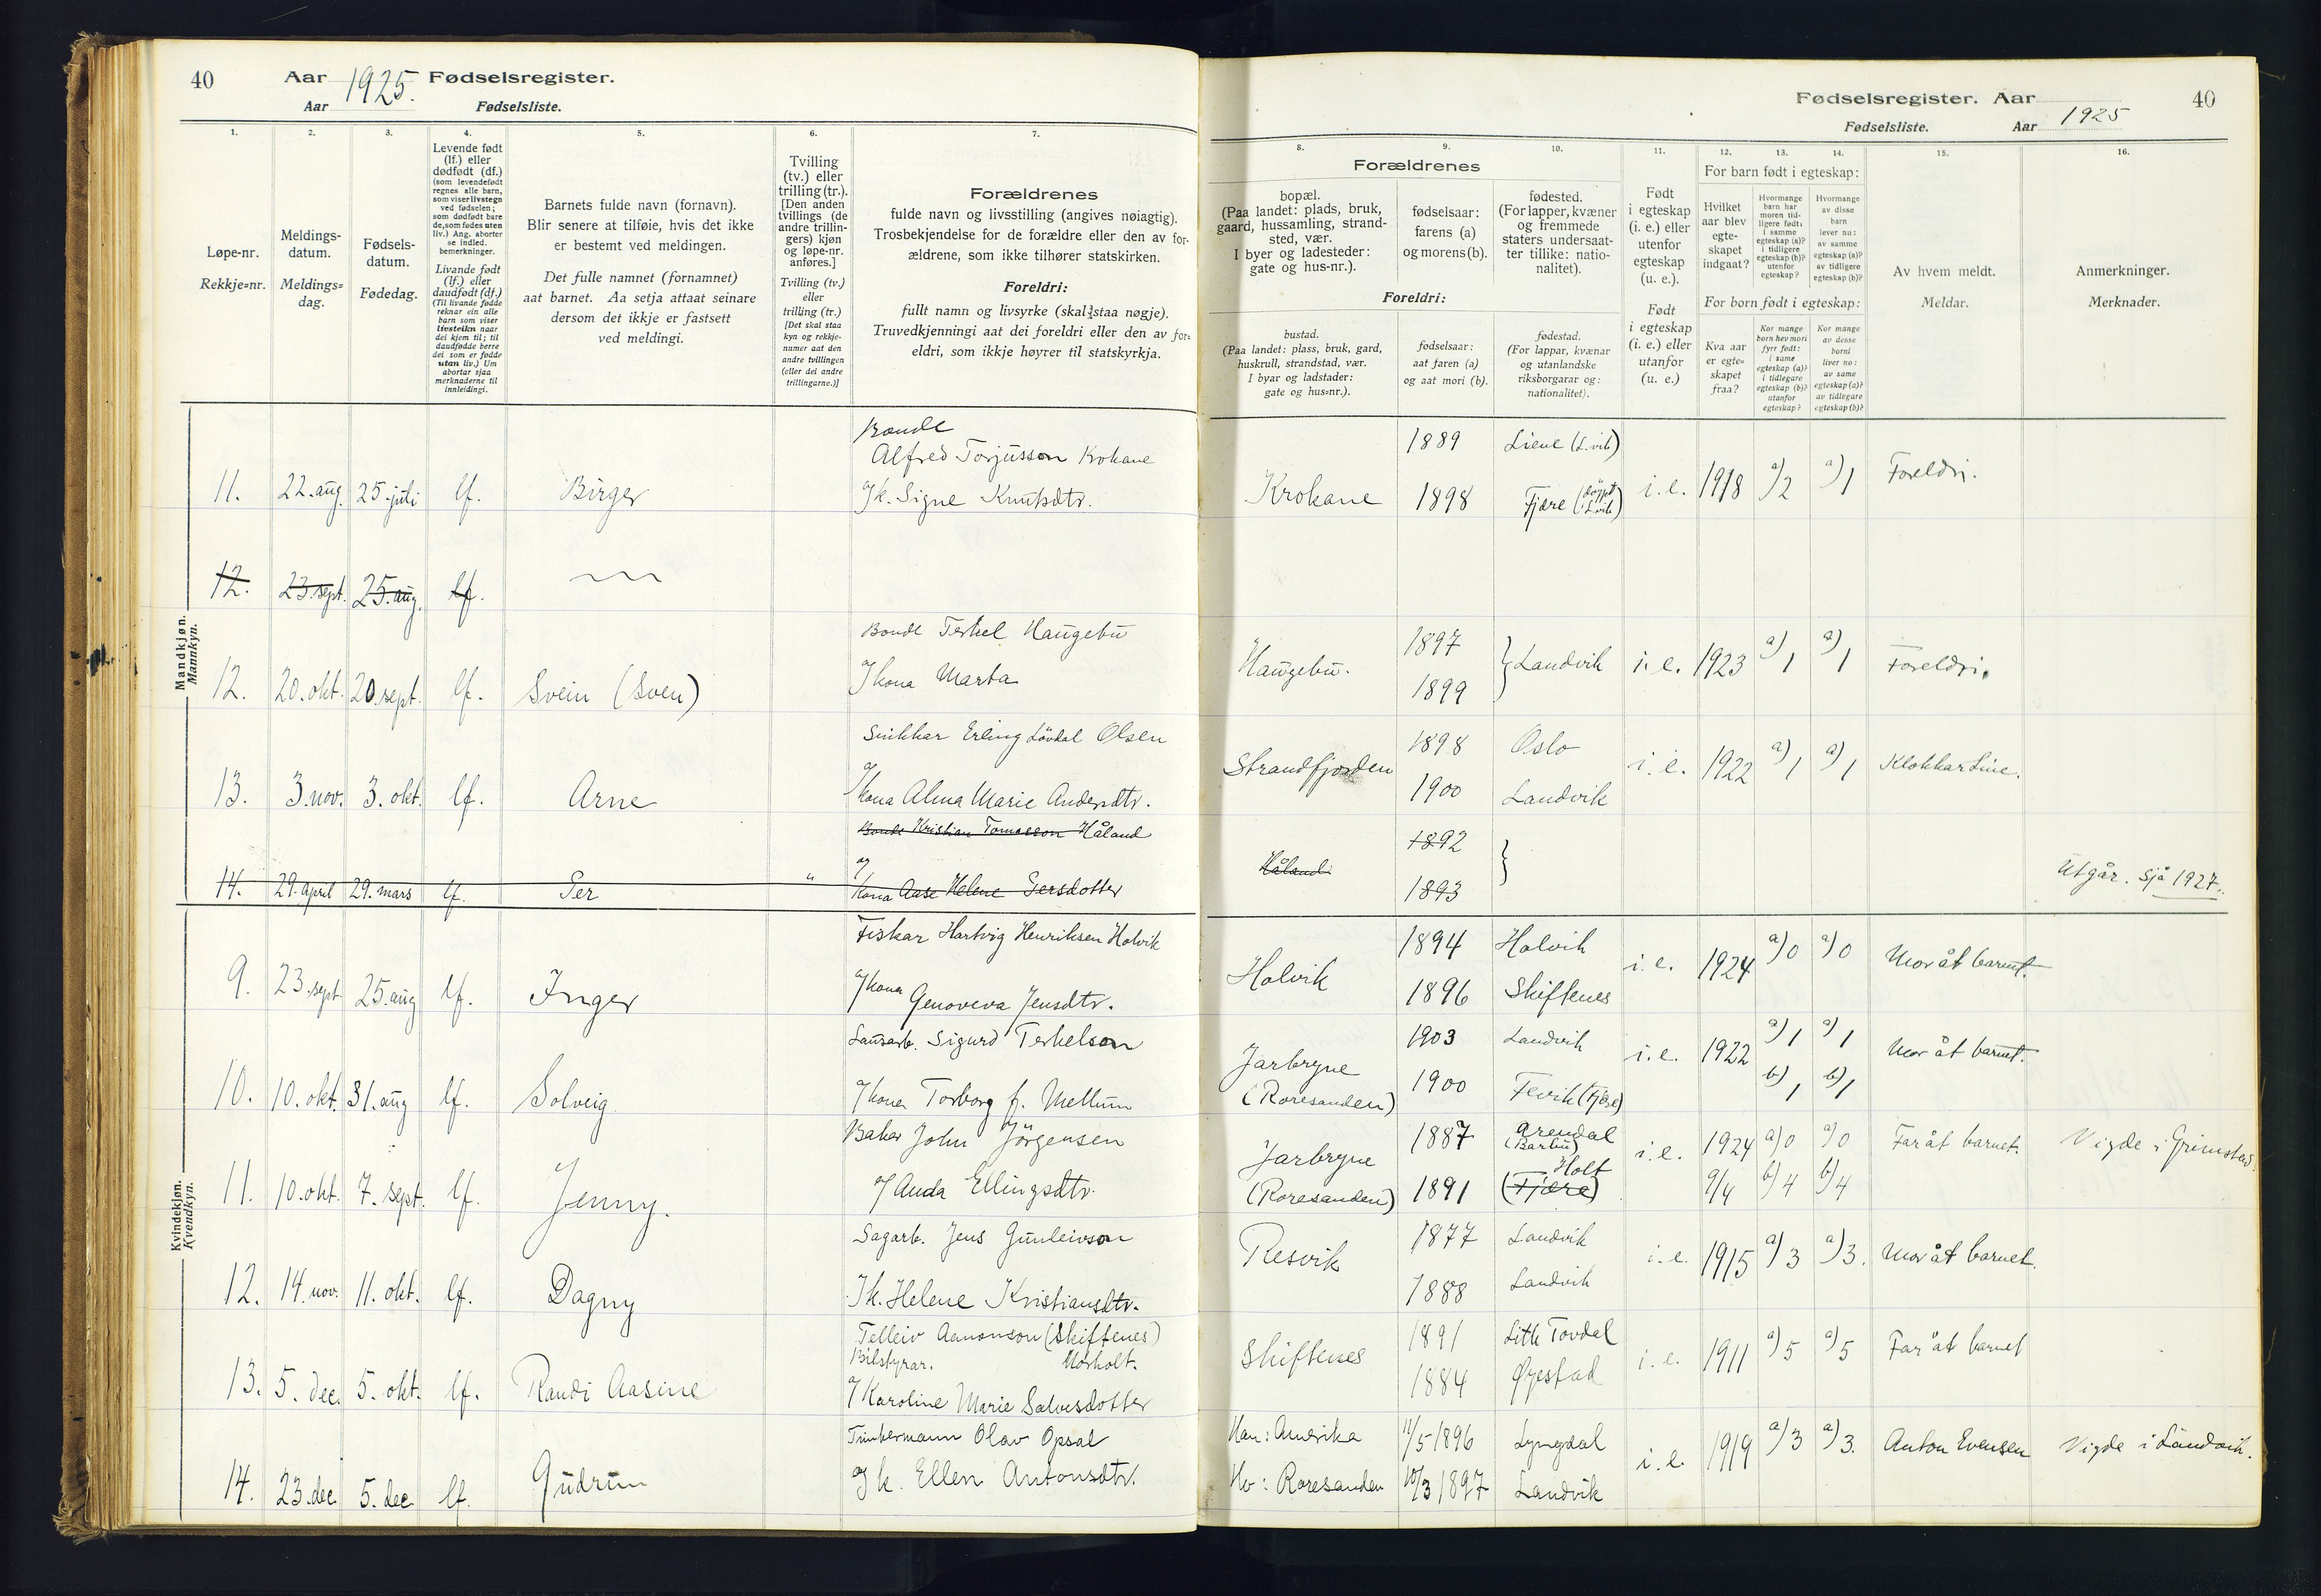 40
Aar 1925. Fødselsregister.
Aar
Fødselsliste.
1.
2.
3.
4.
5.
6.
7.
Løpe-nr.
Rekkje=nr.
Meldings-
datum.
Meldings=
dag.
Fødsels-
datum.
Fødedag.
Levende født
(lf.) eller
dødfødt (df.)
(som levendefødt
regnes alle barn,
som viser livstegn
ved fødselen;
som dødfødt bare
de, som fødes uten
liv.) Ang. aborter
se indled.
bemerkninger.
Livande født
(lf.) eller
daudfødt (df.)
(Til livande fødde
reknar ein alle
barn som viser
livsteikn naar
dei kjem til; til
daudfødde berre
dei som er fødde
utan liv.) Um
abortar sjaa
merknaderne til
innleidingi.
Barnets fulde navn (fornavn).
Blir senere at tilføie, hvis det ikke
er bestemt ved meldingen.
Det fulle namnet (fornamnet)
aat barnet. Aa setja attaat seinare
dersom det ikkje er fastsett
ved meldingi.
Tvilling
(tv.) eller
trilling (tr.).
[Den anden
tvillings (de
andre trillin-
gers) kjøn
og løpe-nr.
anføres.]
Tvilling (tv.)
eller
trilling (tr.)
[Det skal staa
kyn og rekkje-
numer aat den
andre tvillingen
(eller dei andre
trillingarne.)]
Forældrenes
fulde navn og livsstilling (angives nøiagtig).
Trosbekjendelse for de forældre eller den av for-
ældrene, som ikke tilhører statskirken.
Foreldri:
fullt namn og livsyrke (skal staa nøgje).
Truvedkjenningi aat dei foreldri eller den av for=
eldri, som ikkje høyrer til statskyrkja.
Mandkjøn.
Mannkyn.
Bonde
Alfred Torjusson Krokane
11. 22. aug. 25. juli lf. Birger
/k. Signe Knutsdtr.
12. 23. sept. 25. aug. lf.
Bonde Terkel Haugebu
12. 20. okt. 20. sept. lf. Svein (Sven)
/kona Marta
Snikkar Erling Lövdal Olsen
13. 3. nov. 3. okt. lf. Arne
/kona Alma Marie Andersdtr.
Bonde Kristian Tomasson Håland
og
14. 29. april 29. mars lf. Per "
Kona Aase Helene Persdotter
Kvindekjøn.
Kvendkyn.
Fiskar Hartvig Henriksen Holvik
9. 23. sept 25. aug lf. Inger
/kona Genoveva Jensdtr.
Lausarb. Sigurd Terkelson
10. 10. okt. 31. aug lf. Solveig
/kona Torborg f. Mellum
Baker John Jörgensen
11. 10. okt. 7. sept. lf. Jenny.
/ Anda Ellingsdtr.
Sagarb. Jens Gunleivson
12. 14. nov. 11. okt. lf. Dagny
/k. Helene Kristiansdtr.
Telleiv Aamonson (Skiftenes)
Bilstyrar.
13. 5. dec. 5. okt. lf. Randi Aasine
/ Karoline Marie Salvesdotter
Timbermann Olav Opsal
14. 23. dec. 5. dec. lf. Gudrun
/k. Ellen Antonsdtr.
Fødselsregister. Aar 40
Fødselsliste. Aar 1925
8.
9.
10.
11.
12.
13.
14.
15.
16.
Forældrenes
bopæl.
(Paa landet: plads, bruk,
gaard, hussamling, strand-
sted, vær.
I byer og ladesteder:
gate og hus-nr.).
fødselsaar:
farens (a)
og morens (b).
fødested.
(For lapper, kvæner
og fremmede
staters undersaat-
ter tillike: natio-
nalitet).
Foreldri:
bustad.
(Paa landet: plass, bruk, gard,
huskrull, strandstad, vær.
I byar og ladstader:
gate og hus=nr.).
fødselsaar:
aat faren (a)
og aat mori (b).
fødestad.
(For lappar, kvænar
og utanlandske
riksborgarar og:
nationalitet).
Født
i egteskap
(i. e.) eller
utenfor
egteskap
(u. e.).
Født
i egteskap
(i. e.) eller
utanfor
(u. e.)
For barn født i egteskap:
Hvilket
aar blev
egte-
skapet
indgaat?
Hvormange
barn har
moren tid-
ligere født:
i samme
egteskap (a)?
i tidligere
egteskap (b)?
utenfor
egteskap?
Hvormange
av disse
barn
lever nu:
av samme
egteskap (a)?
av tidligere
egteskap (b)?
For born født i egteskap:
Kva aar
er egte=
skapet
fraa?
Kor mange
born hev mori
fyrr født:
i same
egteskap (a)?
i tidlegare
egteskap (b)?
utanfor
egteskap?
Kor mange
av desse
borni
liver no:
av same
egteskap (a)?
av tidlegare
egteskap (b)?
Av hvem meldt.
Meldar.
Anmerkninger.
Merknader.
1889 Liene (L.vik)
Krokane i. e. 1918 a)2 a)1 Foreldri.
1898 Fjære (döypt L.vik)
1897
Haugebu. } Landvik i. e. 1923 a)1 a)1 Foreldri.
1899
1898 Oslo
Strandfjorden i. e. 1922 a)1 a)1 Klokkar Line.
1900 Landvik
1892
Håland. }
1893
Utgår. Sjå 1927.
1894 Holvik
Holvik i. e. 1924 a)0 a)0 Mor åt barnet.
1896 Skiftenes
1903 Landvik
Jarbryne i. e. 1922 a)1 a)1 Mor åt barnet.
(Roresanden) 1900 Fevik (Fjære) b)1 b)1
1887 Arendal
(Barbu)
Jarbryne i. e. 1924 a)0 a)0 Far åt barnet. Vigde i Grimstad.
Holt
(Roresanden) 1891 (Fjære) 9/4 b)4 b)4
1877 Landvik
Resvik i. e. 1915 a)3 a)3. Mor åt barnet.
1888 Landvik
1891 Lith Tovdal
Skiftenes i. e. 1911 a)5 a)5 Far åt barnet
1884 Øyestad
Han: Amerika 11/5 1896 Lyngdal
i. e. 1919 a)3 a)3. Anton Evensen Vigde i Landvik.
Ho: Roresanden 10/3 1897 Landvik